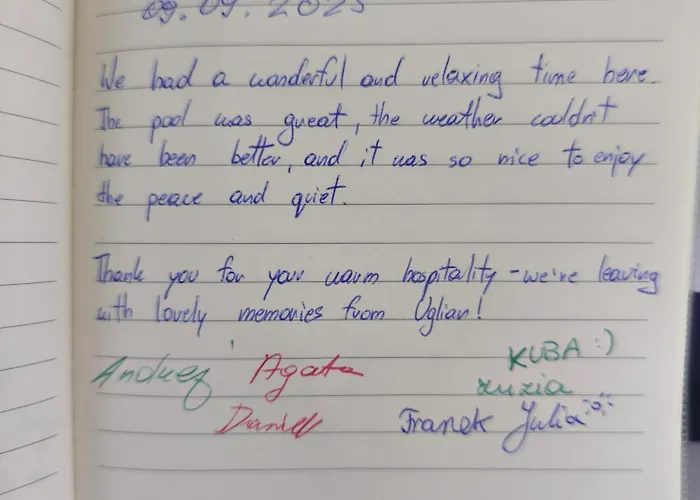 09.09.2025
We had a wonderful and relaxing time here.
The pool was great, the weather couldn't
have been better, and it was so nice to enjoy
the peace and quiet.
Thank you for your warm hospitality - we're leaving
with lovely memories from Uglian!
Andrzej Agata KUBA :)
zuzia
Daniel Franek Julia